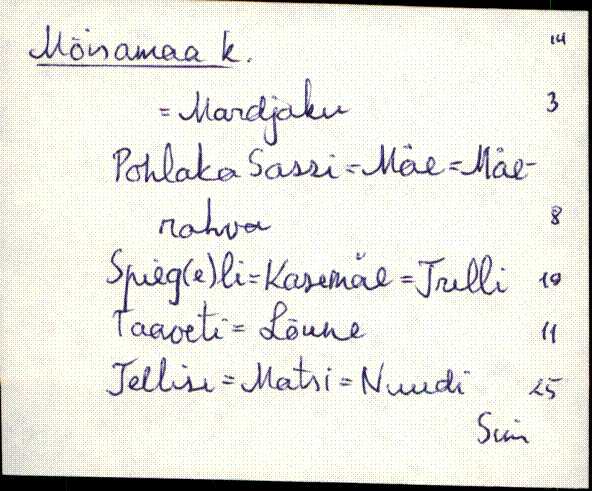 Mõisamaa k. 14
= Mardjaku 3
Pohlaka Sassi = Mäe = Mäe-
rahva 8
Spieg(e)li = Kasemäe = Trelli 19
Taaveti = Lõune 11
Tellise = Matsi = Nuudi 25